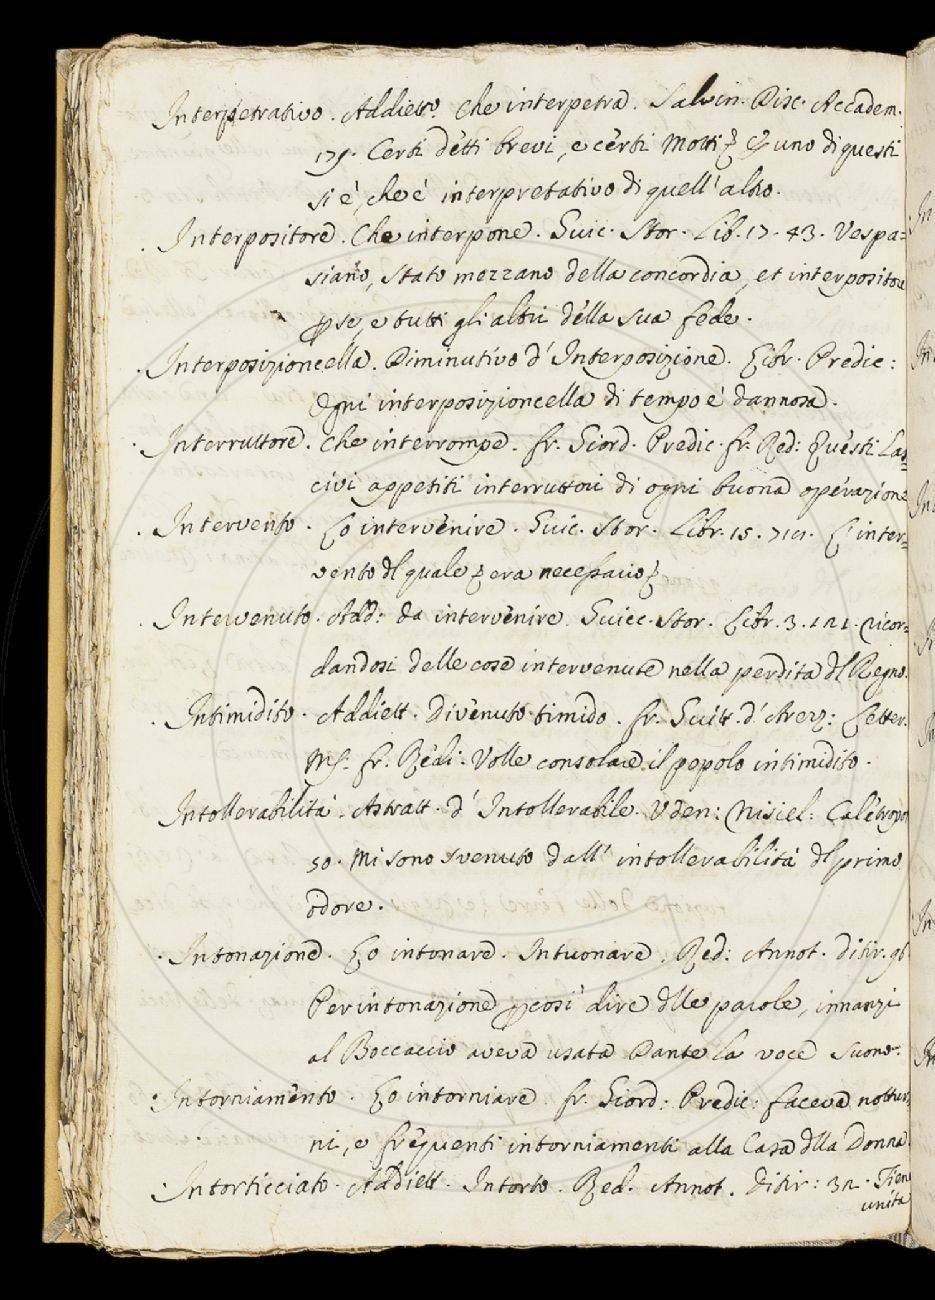 Interpetrativo. Addiett. Che interpetra. Salvin. Disc. Accadem.
179. Certi detti brevi, e certi Motti uno di questi
si è, che è interpretativo di quell'altro.
Interpositore. Che interpone. Guic. Stor. Lib. 17. 43. Vespa=
siano, stato mezzano della concordia, et interpositore
pse, e tutti gli altri della sua fede.
Interposizioncella. Diminutivo d'Interposizione. Libr. Predic:
Ogni interposizioncella di tempo è dannosa.
Interruttore. Che interrompe. fr. Giord. Predic. fr. Red: Questi Las=
civi appetiti interruttori di ogni buona operazione
Intervento. Lo intervenire. Guic. Stor. Libr. 15. L'inter=
vento dl quale era necessario
Intervenuto. Add: da intervenire. Guicc. Stor. Libr. 3. Ricor=
dandosi delle cose intervenute nella perdita dl Regno.
Intimidito. Addiett. Divenuto timido. fr. Guitt. d'Arezz: Letter.
Ms. fr. Redi. Volle consolare il popolo intimidito.
Intollerabilità. Astratt. d'Intollerabile. Uden: Nisiel:
50. Mi sono svenuto dall'intollerabilità dl primo
odore.
Intonazione. Lo intonare. Intuonare. Red: Annot. ditir. 96
Per intonazione p così dire dlle parole, innanzi
al Boccaccio aveva usata Dante la voce suono.
Intorniamento. Lo intorniare. fr. Giord: Predic: faceva nottur
ni, e frequenti intorniamenti alla Casa dlla Donna
Intorticciato. Addiett. Intorto. Red. Annot. Ditir: 32. Tien
unita